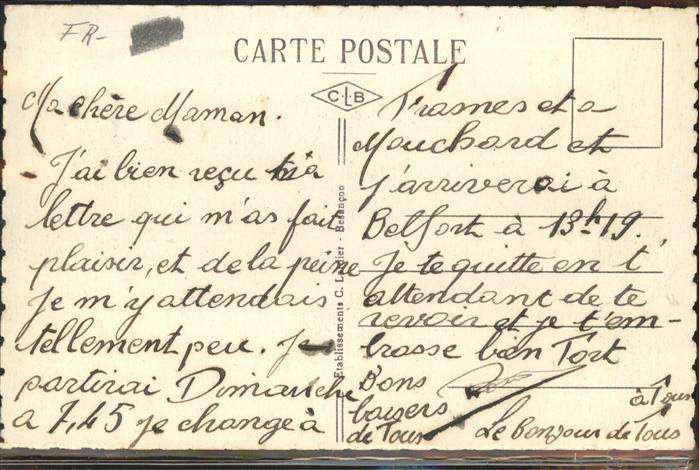 FR-
CARTE POSTALE
C.L.B
Ma chère Maman.
J'ai bien reçu ta
lettre qui m'as fait
plaisir, et de la peine
je m'y attendais
tellement peu. Je
partirai Dimanche
a 7,45 je change à
Etablissements C. L - Besançon
Frasnes et a
Mouchard et
j'arriverai à
Belfort à 13h19.
Je te quitte en t'
attendant de te
revoir et je t'em-
brasse bien Fort
Bons
baisers
de Tous
à Tous
Le bonjour de Tous